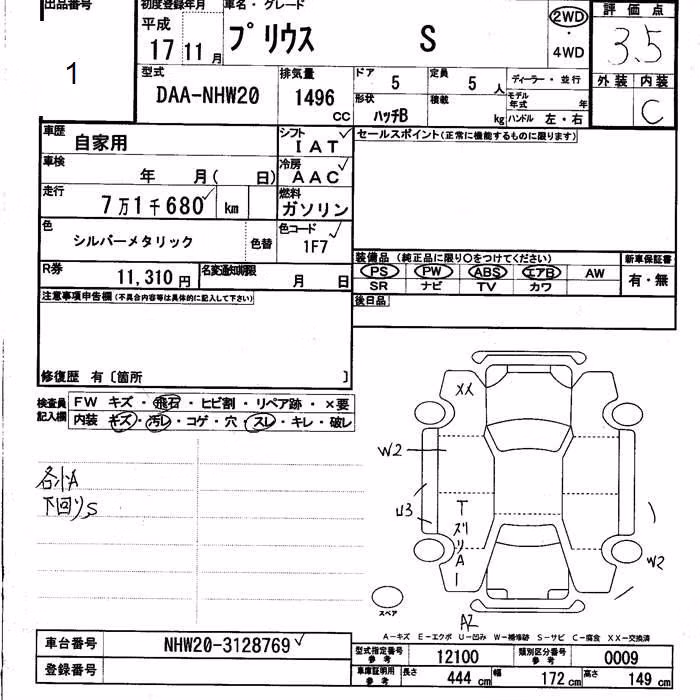 出品番号
1
初度登録年月
平成
17 11 月
車名・グレード
プリウス S
2WD
・
4WD
評価点
3.5
外装 内装
C
型式
DAA-NHW20
排気量
1496
CC
ドア 5
定員 5 人
形状 ハッチB
積載 kg
ディーラー・並行
モデル年式 年
ハンドル 左・右
車歴 自家用
シフト IAT
セールスポイント(正常に機能するものに限ります)
車検 年 月( 日)
冷房 AAC
走行 7万1千680 km
燃料 ガソリン
色 シルバーメタリック 色替
色コード 1F7
装備品 (純正品に限り〇をつけてください)
新車保証書
PS PW ABS エアB AW
有・無
SR ナビ TV カワ
R券 11,310円
名変通知期限 月 日
後日品
注意事項申告欄(不具合内容等は具体的に記入して下さい)
修復歴 有〔箇所 〕
検査員記入欄
FW キズ・飛石・ヒビ割・リペア跡・×要
内装 キズ・汚レ・コゲ・穴・スレ・キレ・破レ
各小A
下回りS
XX
W2
U3
W2
A2
スペア
A-キズ E-エクボ U-凹み W-補修跡 S-サビ C-腐食 XX-交換済
車台番号 NHW20-3128769
登録番号
型式指定番号 参考 12100
類別区分番号 参考 0009
車庫証明用 参考 長さ 444 cm 幅 172 cm 高さ 149 cm